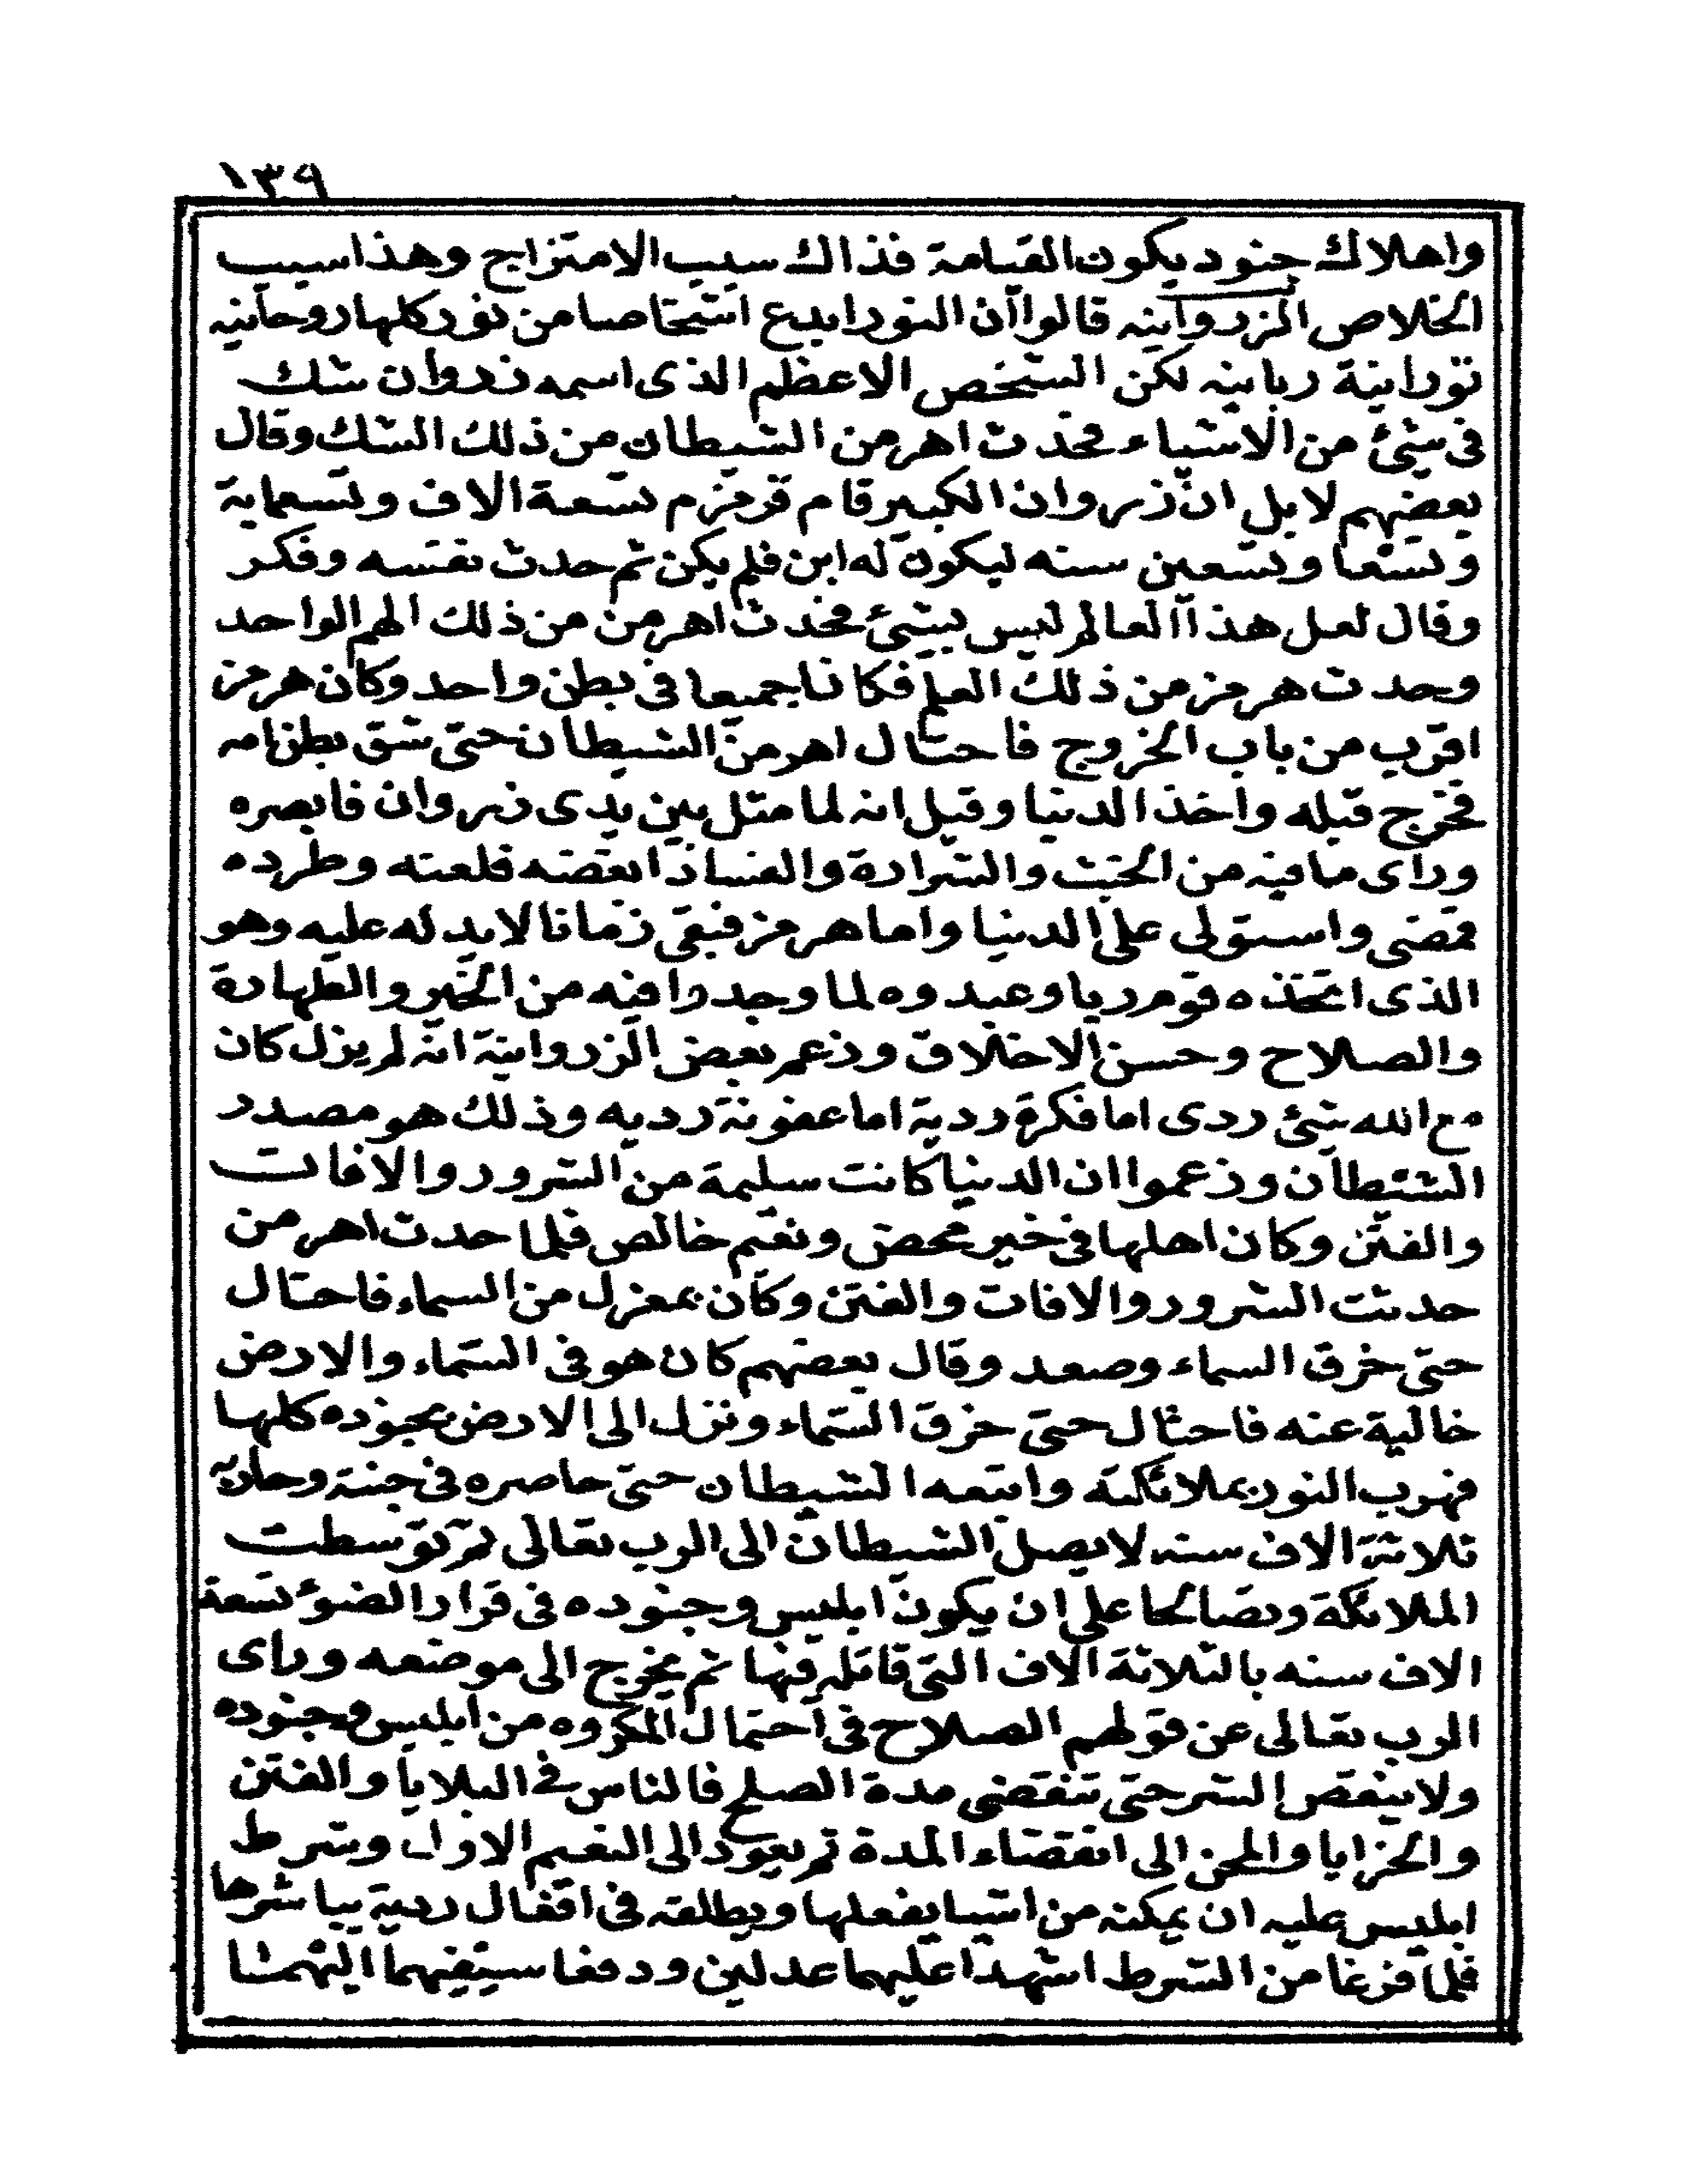 ١٣٩
واهلاك جنود يكون القيامة فذاك سبب الامتزاج وهذا سبب
الخلاص الزروانيه قالوا ان النور ابدع اشخاصا من نور كلها روحانيه
نورانية ربانيه لكن الشخص الاعظم الذى اسمه زروان شك
فى شئ من الاشياء فحدث اهرمن الشيطان من ذلك الشك وقال
بعضهم لا بل ان زروان الكبير قام قرمزم تسعة الاف وتسعماية
وتسعا وتسعين سنه ليكون له ابن فلم يكن ثم حدث نفسه وفكر
وقال لعل هذا العالم ليس بشئ فحدث اهرمن من ذلك الهم الواحد
وحدث هرمز من ذلك العلم فكانا جميعا فى بطن واحد وكان هرمز
اقرب من باب الخروج فاحتال اهرمن الشيطان حتى شق بطن امه
فخرج قبله واخذ الدنيا وقيل انه لما مثل بين يدى زروان فابصره
وراى ما فيه من الخبث والشرارة والفساد ابغضه فلعنه وطرده
فمضى واستولى على الدنيا واما هرمز فبقى زمانا لايد له عليه وهو
الذى اتخذه قوم ربا وعبدوه لما وجدوا فيه من الخير والطهارة
والصلاح وحسن الاخلاق وزعم بعض الزروانية انه لم يزل كان
مع الله شئ ردى اما فكرة ردية اما عفونة رديه وذلك هو مصدر
الشيطان وزعموا ان الدنيا كانت سليمة من الشرور والافات
والفتن وكان اهلها فى خير محض ونعيم خالص فلما حدث اهرمن
حدثت الشرور والافات والفتن وكان بمعزل من السماء فاحتال
حتى خرق السماء وصعد وقال بعضهم كان هو فى السماء والارض
خالية عنه فاحتال حتى خرق السماء ونزل الى الارض بجنوده كلها
فهرب النور بملائكته واتبعه الشيطان حتى حاصره فى جنته وحاربه
ثلاثة الاف سنه لا يصل الشيطان الى الرب تعالى ثم توسطت
الملائكة وتصالحا على ان يكون ابليس وجنوده فى قرار الضوء تسعة
الاف سنه بالثلاثة الاف التى قاتله فيها ثم يخرج الى موضعه وراى
الرب تعالى عن قولهم الصلاح فى احتمال المكروه من ابليس وجنوده
ولا ينقض الشر حتى تنقضى مدة الصلح فالناس فى البلايا والفتن
والخزايا والمحن الى انقضاء المدة ثم يعود الى النعيم الاول وشرط
ابليس عليه ان يمكنه من اشيا يفعلها ويطلقه فى افعال ردية يباشرها
فلما فرغا من الشرط اشهدا عليهما عدلين ودفعا سيفيهما اليهما